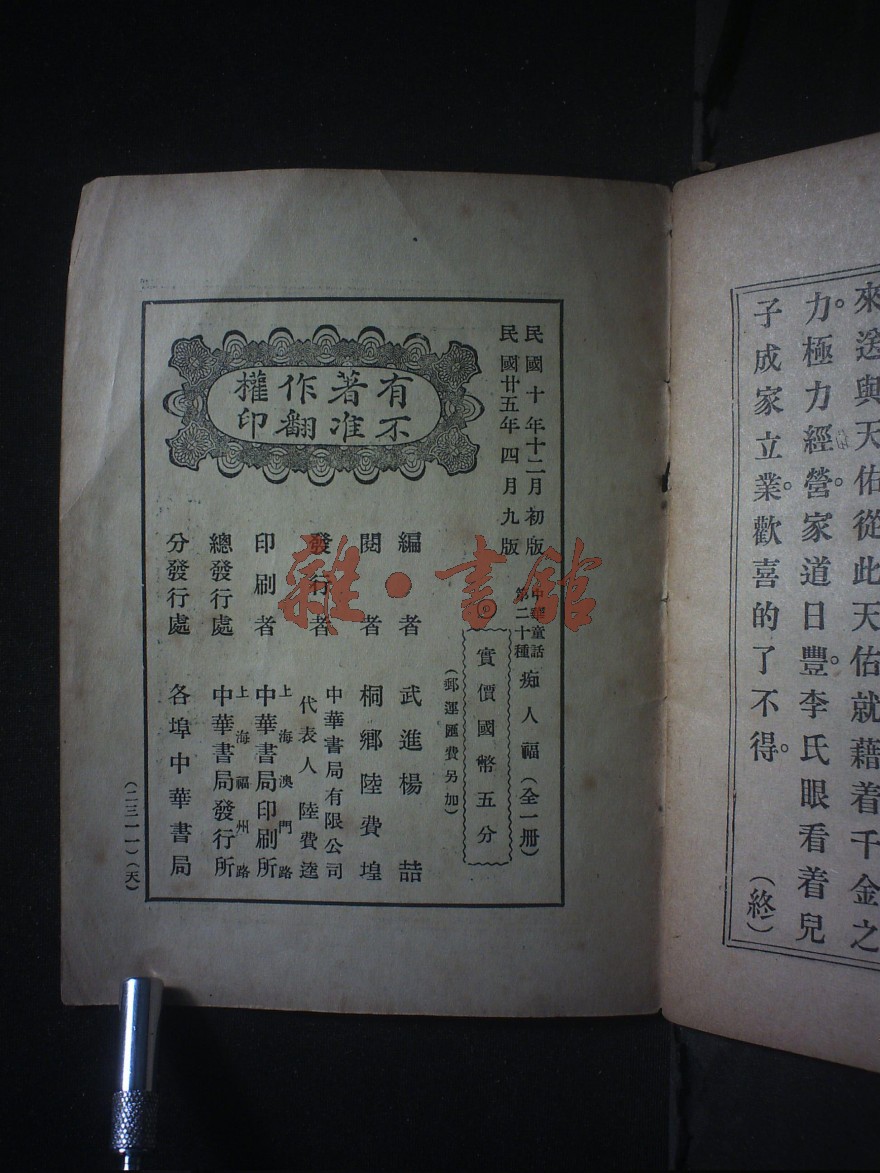 來送與天佑從此天佑就藉着千金之
力。極力經營。家道日豐。李氏眼看着兒
子成家立業。歡喜的了不得。
（終）
民國十年十二月初版
民國廿五年四月九版
有著作權
不准翻印
中華童話
第二十種
痴人福（全一册）
實價國幣五分
（郵運匯費另加）
編者 武進楊喆
閱者 桐鄉陸費堭
發行者 中華書局有限公司
代表人 陸費逵
印刷者 上海澳門路
中華書局印刷所
總發行處 上海福州路
中華書局發行所
分發行處 各埠中華書局
（二三一一）（天）
雜·書館